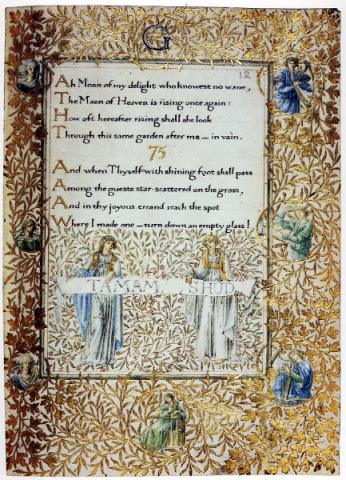 12
Ah Moon of my delight who knowest no wane,
The Moon of Heaven is rising once again:
How oft hereafter rising shall she look
Through this same garden after me — in vain.
75
And when Thyself with shining foot shall pass
Among the guests star-scattered on the grass,
And in thy joyous errand reach the spot
Where I made one — turn down an empty glass!
TAMAM SHUD